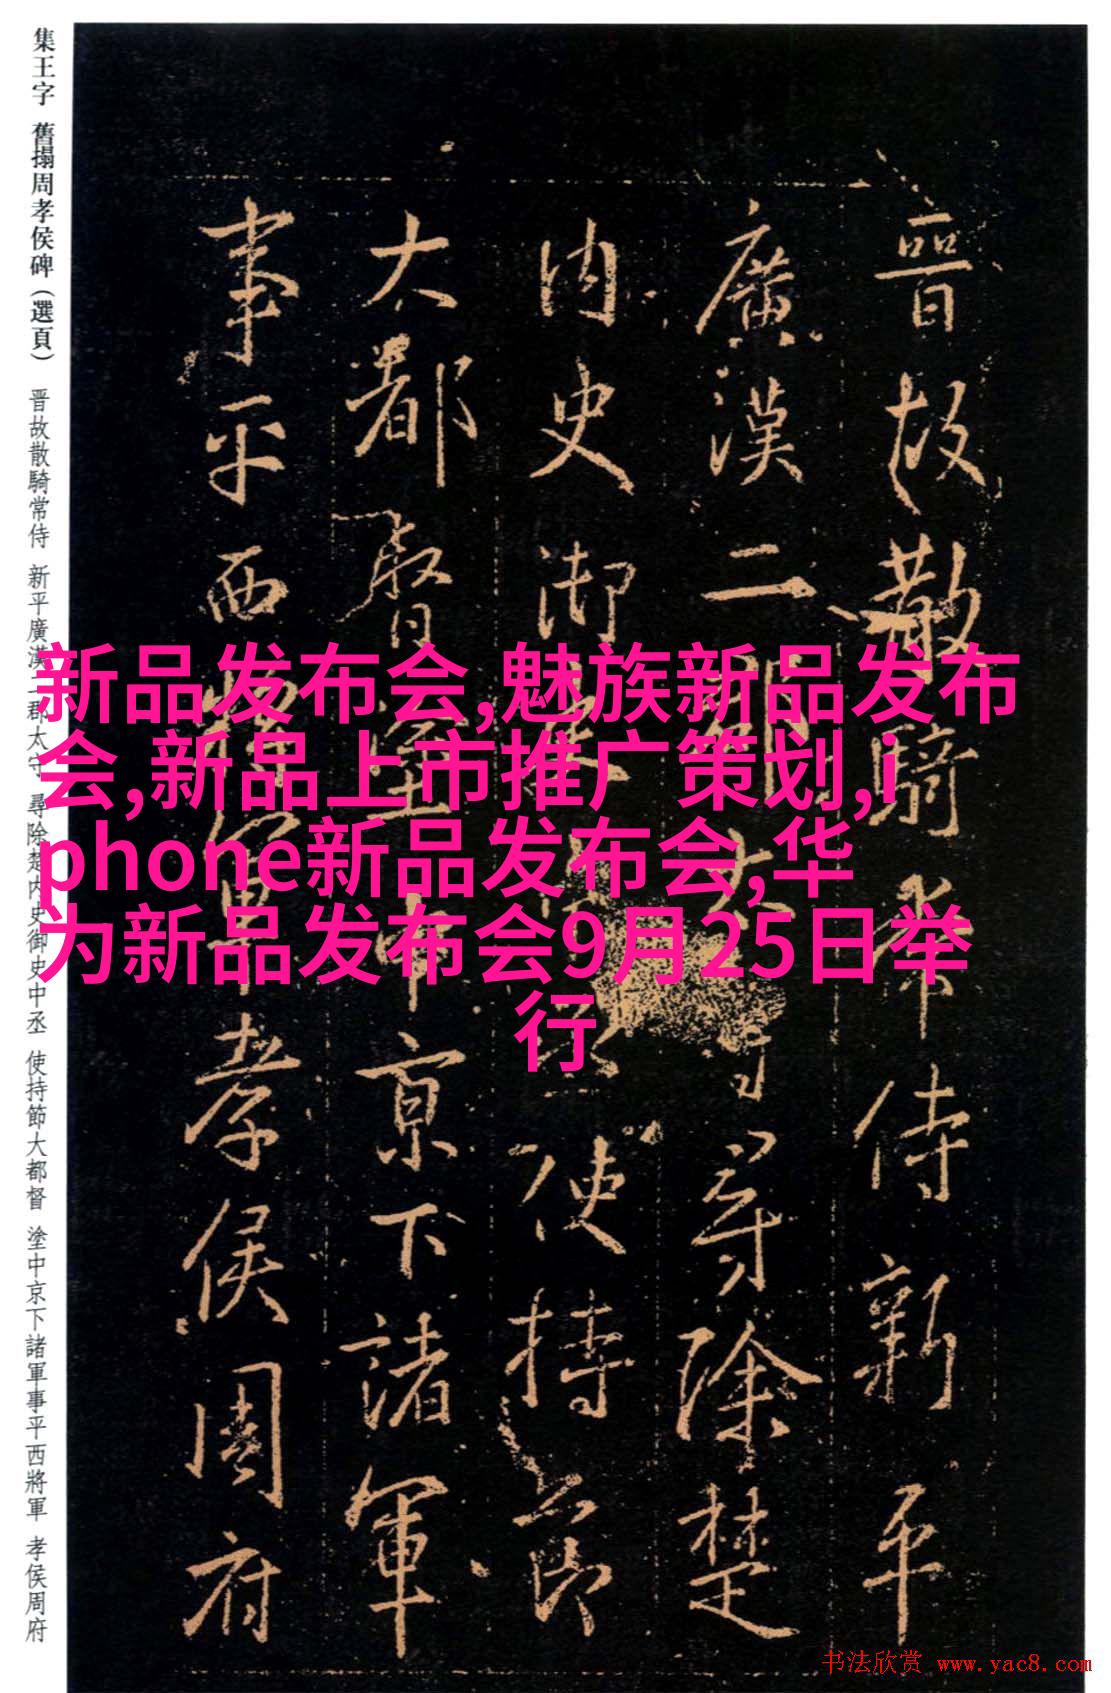 集王字 舊搨周孝侯碑（選頁） 晋故散騎常侍 新平廣漢二郡太守 尋除楚内史御史中丞 使持節大都督 塗中京下諸軍事平西將軍 孝侯周府
晉故散騎常侍新平
廣漢二郡太守尋除楚
内史御史中丞使持節
大都督塗中京下諸軍
事平西將軍孝侯周府
新品发布会,魅族新品发布
会,新品上市推广策划,i
phone新品发布会,华
为新品发布会9月25日举
行
书法欣赏 www.yac8.com